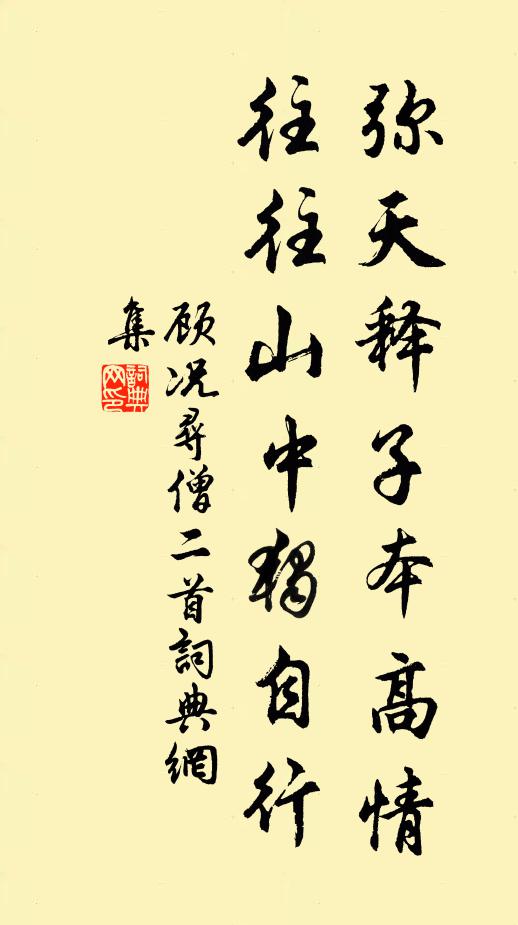 弥天释子本高情
往往山中独自行
顾况寻僧二首詞典網
集
詞典网印